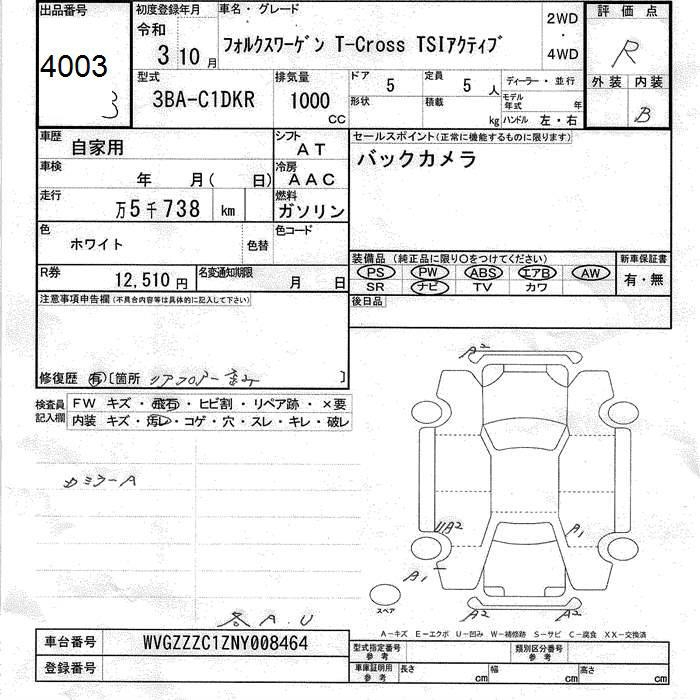 出品番号
4003
3
初度登録年月
令和
3 10月
車名・グレード
フォルクスワーゲン T-Cross TSIアクティブ
2WD
・
4WD
評価点
R
外装 内装
B
型式
3BA-C1DKR
排気量
1000
CC
ドア
5
定員
5 人
形状
積載
kg
ディーラー・並行
モデル年式 年
ハンドル 左・右
車歴
自家用
シフト
AT
車検
年 月( 日)
冷房
AAC
走行
万5千738 km
燃料
ガソリン
色
ホワイト
色替
色コード
R券
12,510円
名変通知期限
月 日
セールスポイント(正常に機能するものに限ります)
バックカメラ
装備品(純正品に限り〇をつけてください)
PS PW ABS エアB AW
SR ナビ TV カワ
新車保証書
有・無
後日品
注意事項申告欄(不具合内容等は具体的に記入して下さい)
修復歴 有〔箇所 リアフロアー 〕
検査員記入欄
FW キズ・飛石・ヒビ割・リペア跡・×要
内装 キズ・汚レ・コゲ・穴・スレ・キレ・破レ
カミラーA
各A.U
A2
UA2
A1
A1
A2
A2
スペア
A-キズ E-エクボ U-凹み W-補修跡 S-サビ C-腐食 XX-交換済
車台番号
WVGZZZC1ZNY008464
登録番号
型式指定番号
参考
類別区分番号
参考
車庫証明用
参考
長さ cm
幅 cm
高さ cm